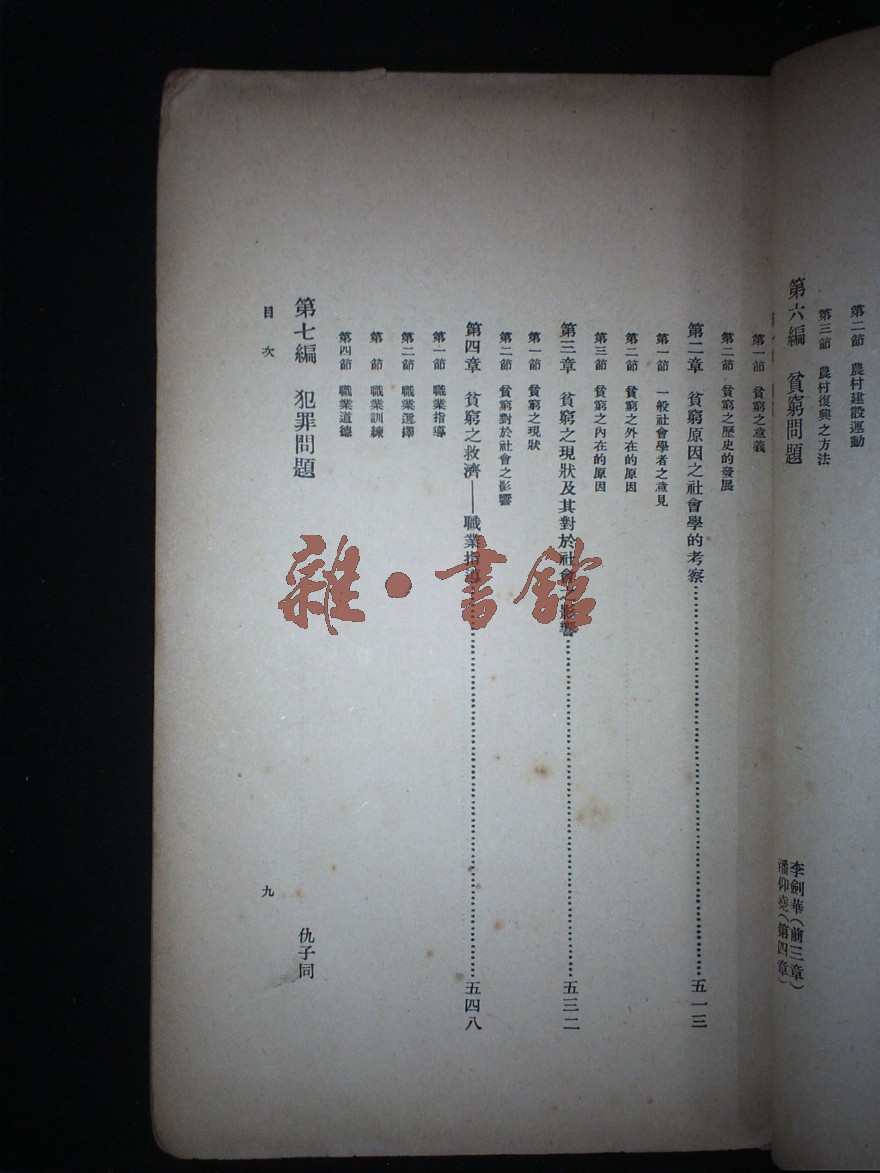 第二節　農村建設運動
第三節　農村復興之方法
第六編　貧窮問題
李劍華（前三章）
潘仰堯（第四章）
第一節　貧窮之意義
第二節　貧窮之歷史的發展
第二章　貧窮原因之社會學的考察……五一三
第一節　一般社會學者之意見
第二節　貧窮之外在的原因
第三節　貧窮之內在的原因
第三章　貧窮之現狀及其對於社會之影響……五三二
第一節　貧窮之現狀
第二節　貧窮對於社會之影響
第四章　貧窮之救濟——職業指導……五四八
第一節　職業指導
第二節　職業選擇
第　節　職業訓練
第四節　職業道德
第七編　犯罪問題　仇子同
目次　九
雜·書館